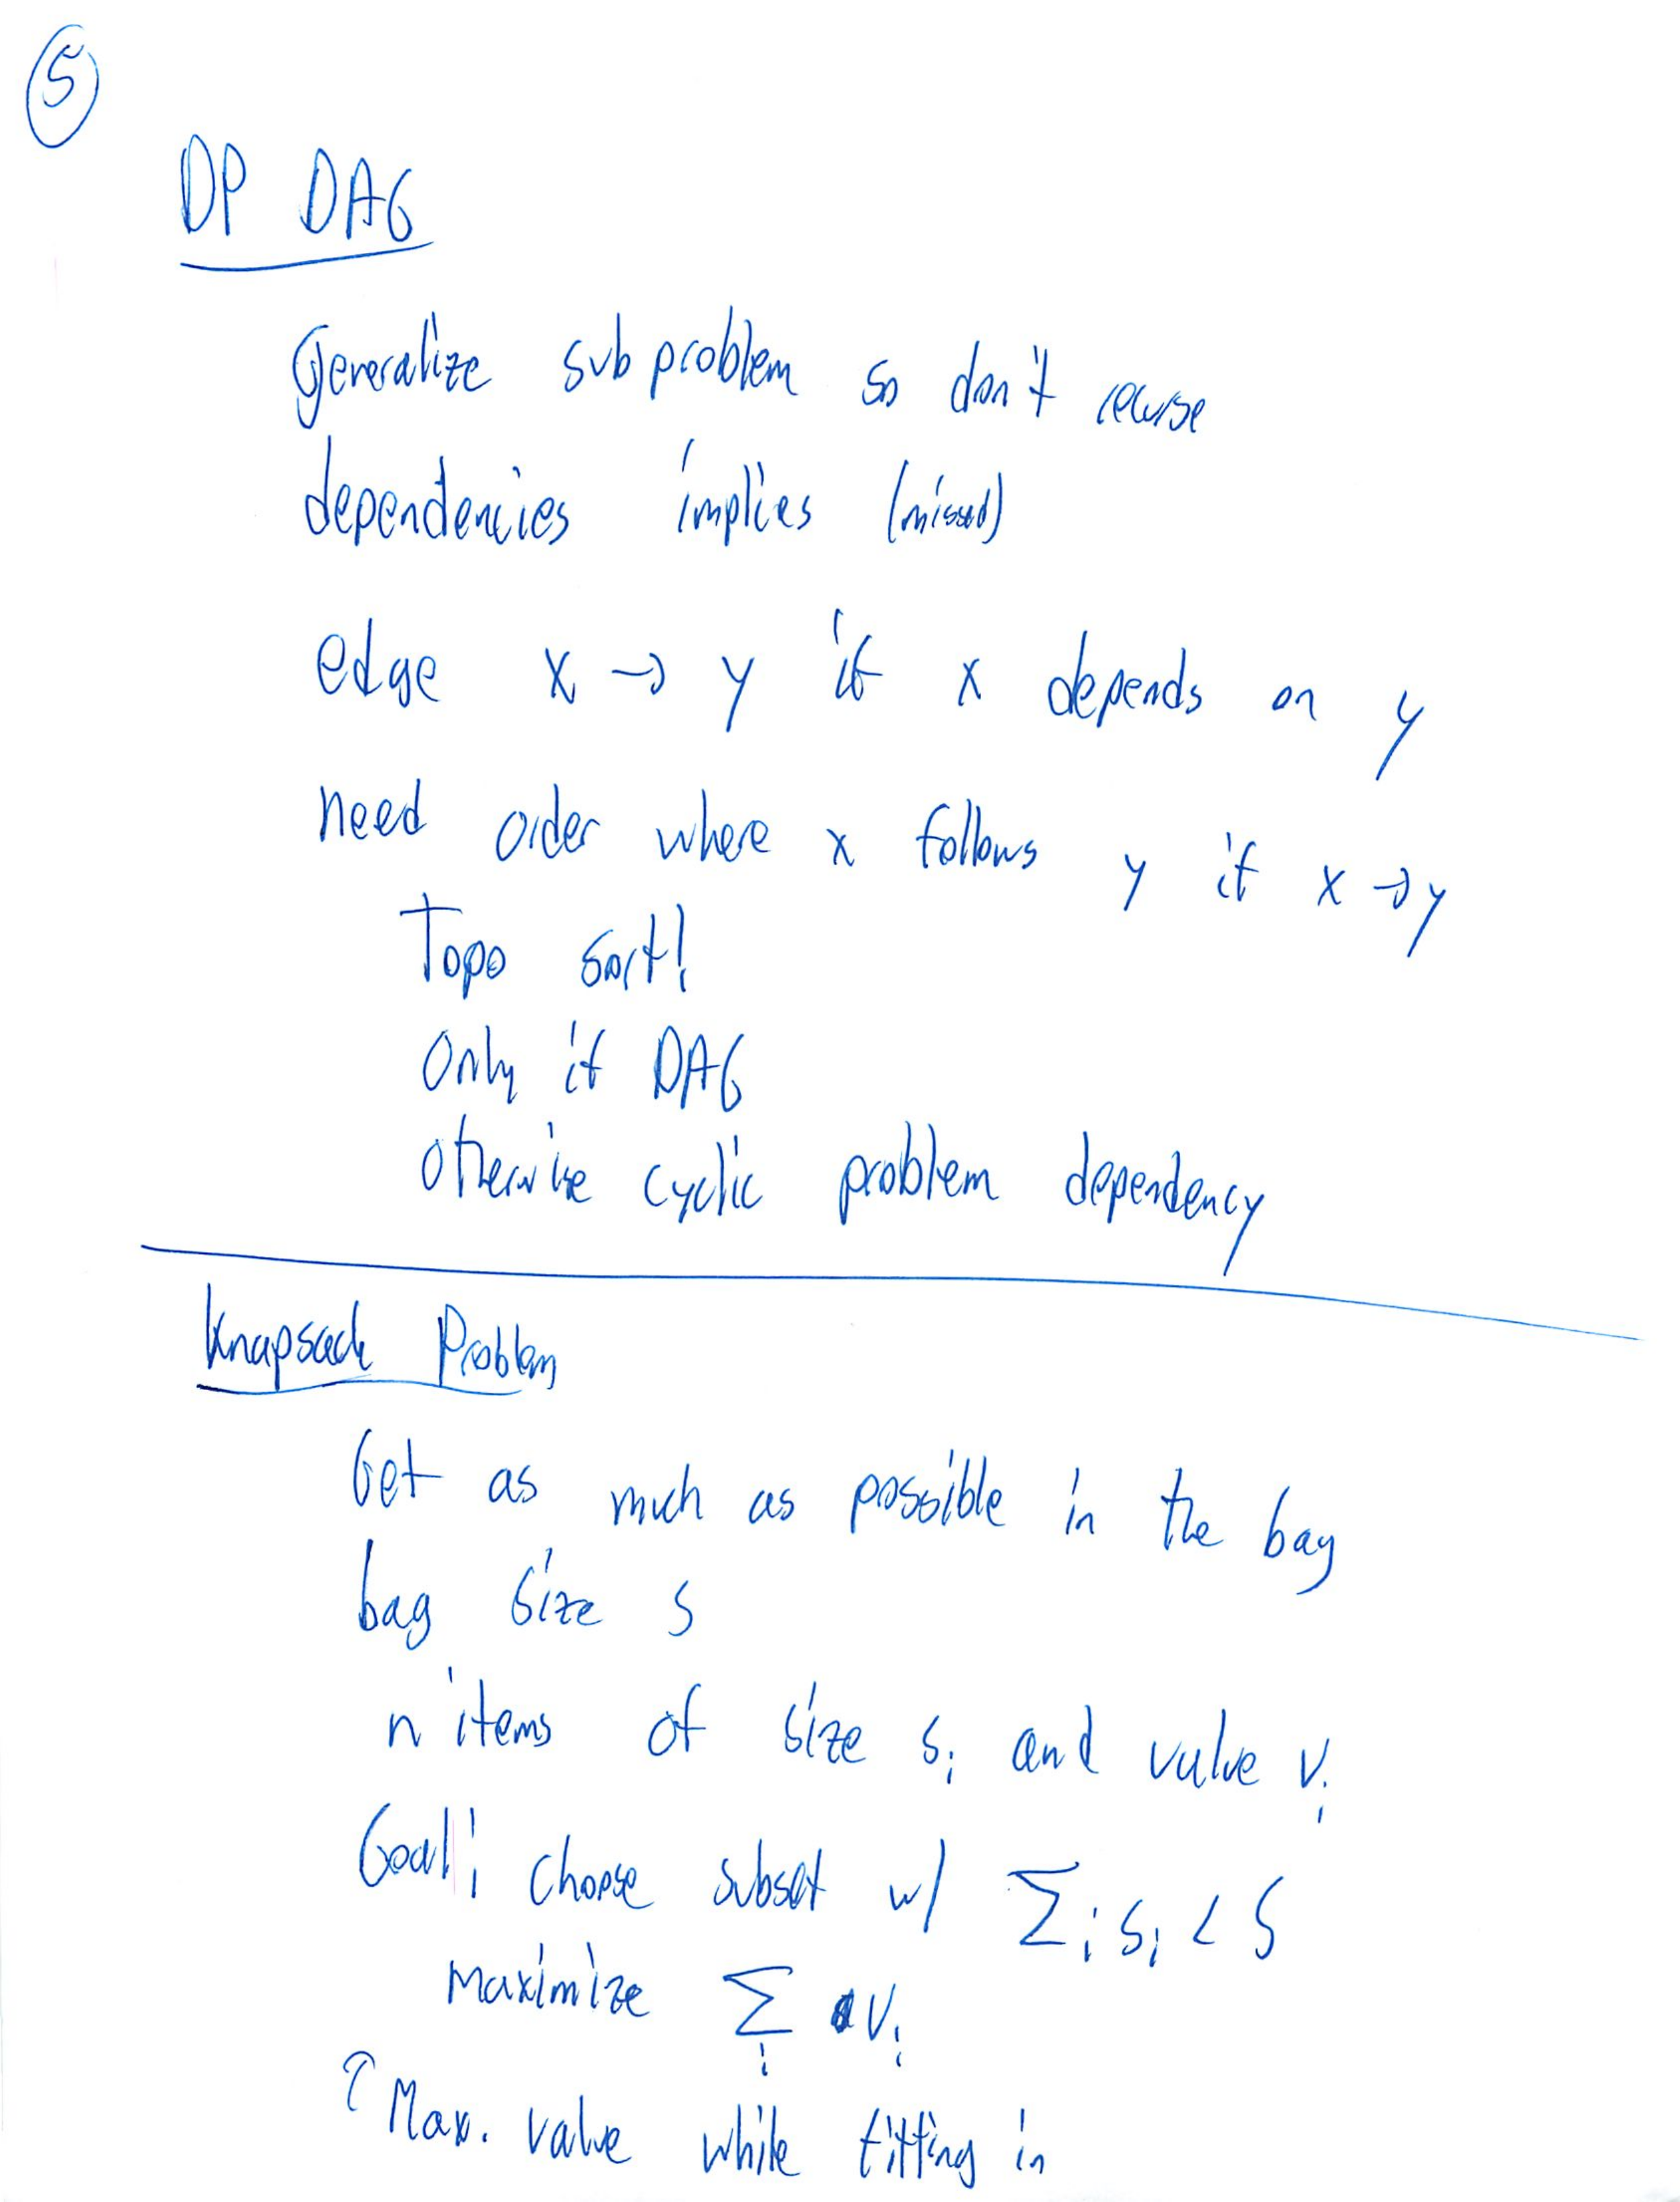 5
DP DAG
Generalize subproblem so don't recurse
dependencies implies (missed)
edge x → y if x depends on y
need order where x follows y if x → y
Topo sort!
Only if DAG
otherwise cyclic problem dependency
Knapsack Problem
Get as much as possible in the bag
bag size S
n items of size sᵢ and value vᵢ
Goal: choose subset w/ Σᵢ sᵢ < S
maximize Σᵢ vᵢ
↑ Max. value while fitting in